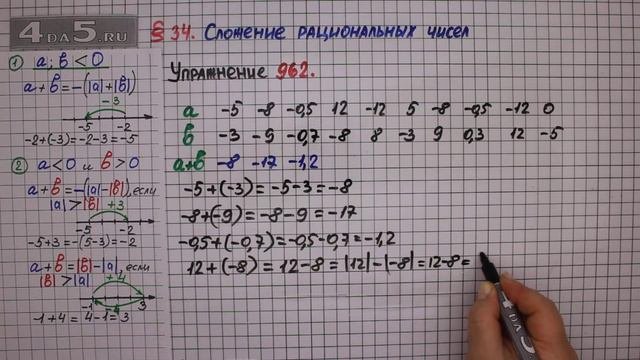 4DA5.RU
§ 34. Сложение рациональных чисел
Упражнение 962.
① a; b < 0
a+b=-(|a|+|b|)
-3
-5 -2
-2+(-3)=-2-3=-5
② a<0 и b>0
a+b=-(|a|-|b|), если
|a|>|b| +3
-5 -2
-5+3=-(5-3)=-2
a+b=|b|-|a|, если
|b|>|a| +4
-1 3
-1+4=4-1=3
a -5 -8 -0,5 12 -12 5 -8 -0,5 -12 0
b -3 -9 -0,7 -8 8 -3 9 0,3 12 -5
a+b -8 -17 -1,2
-5+(-3)=-5-3=-8
-8+(-9)=-8-9=-17
-0,5+(-0,7)=-0,5-0,7=-1,2
12+(-8)=12-8=|12|-|-8|=12-8=
4DA5